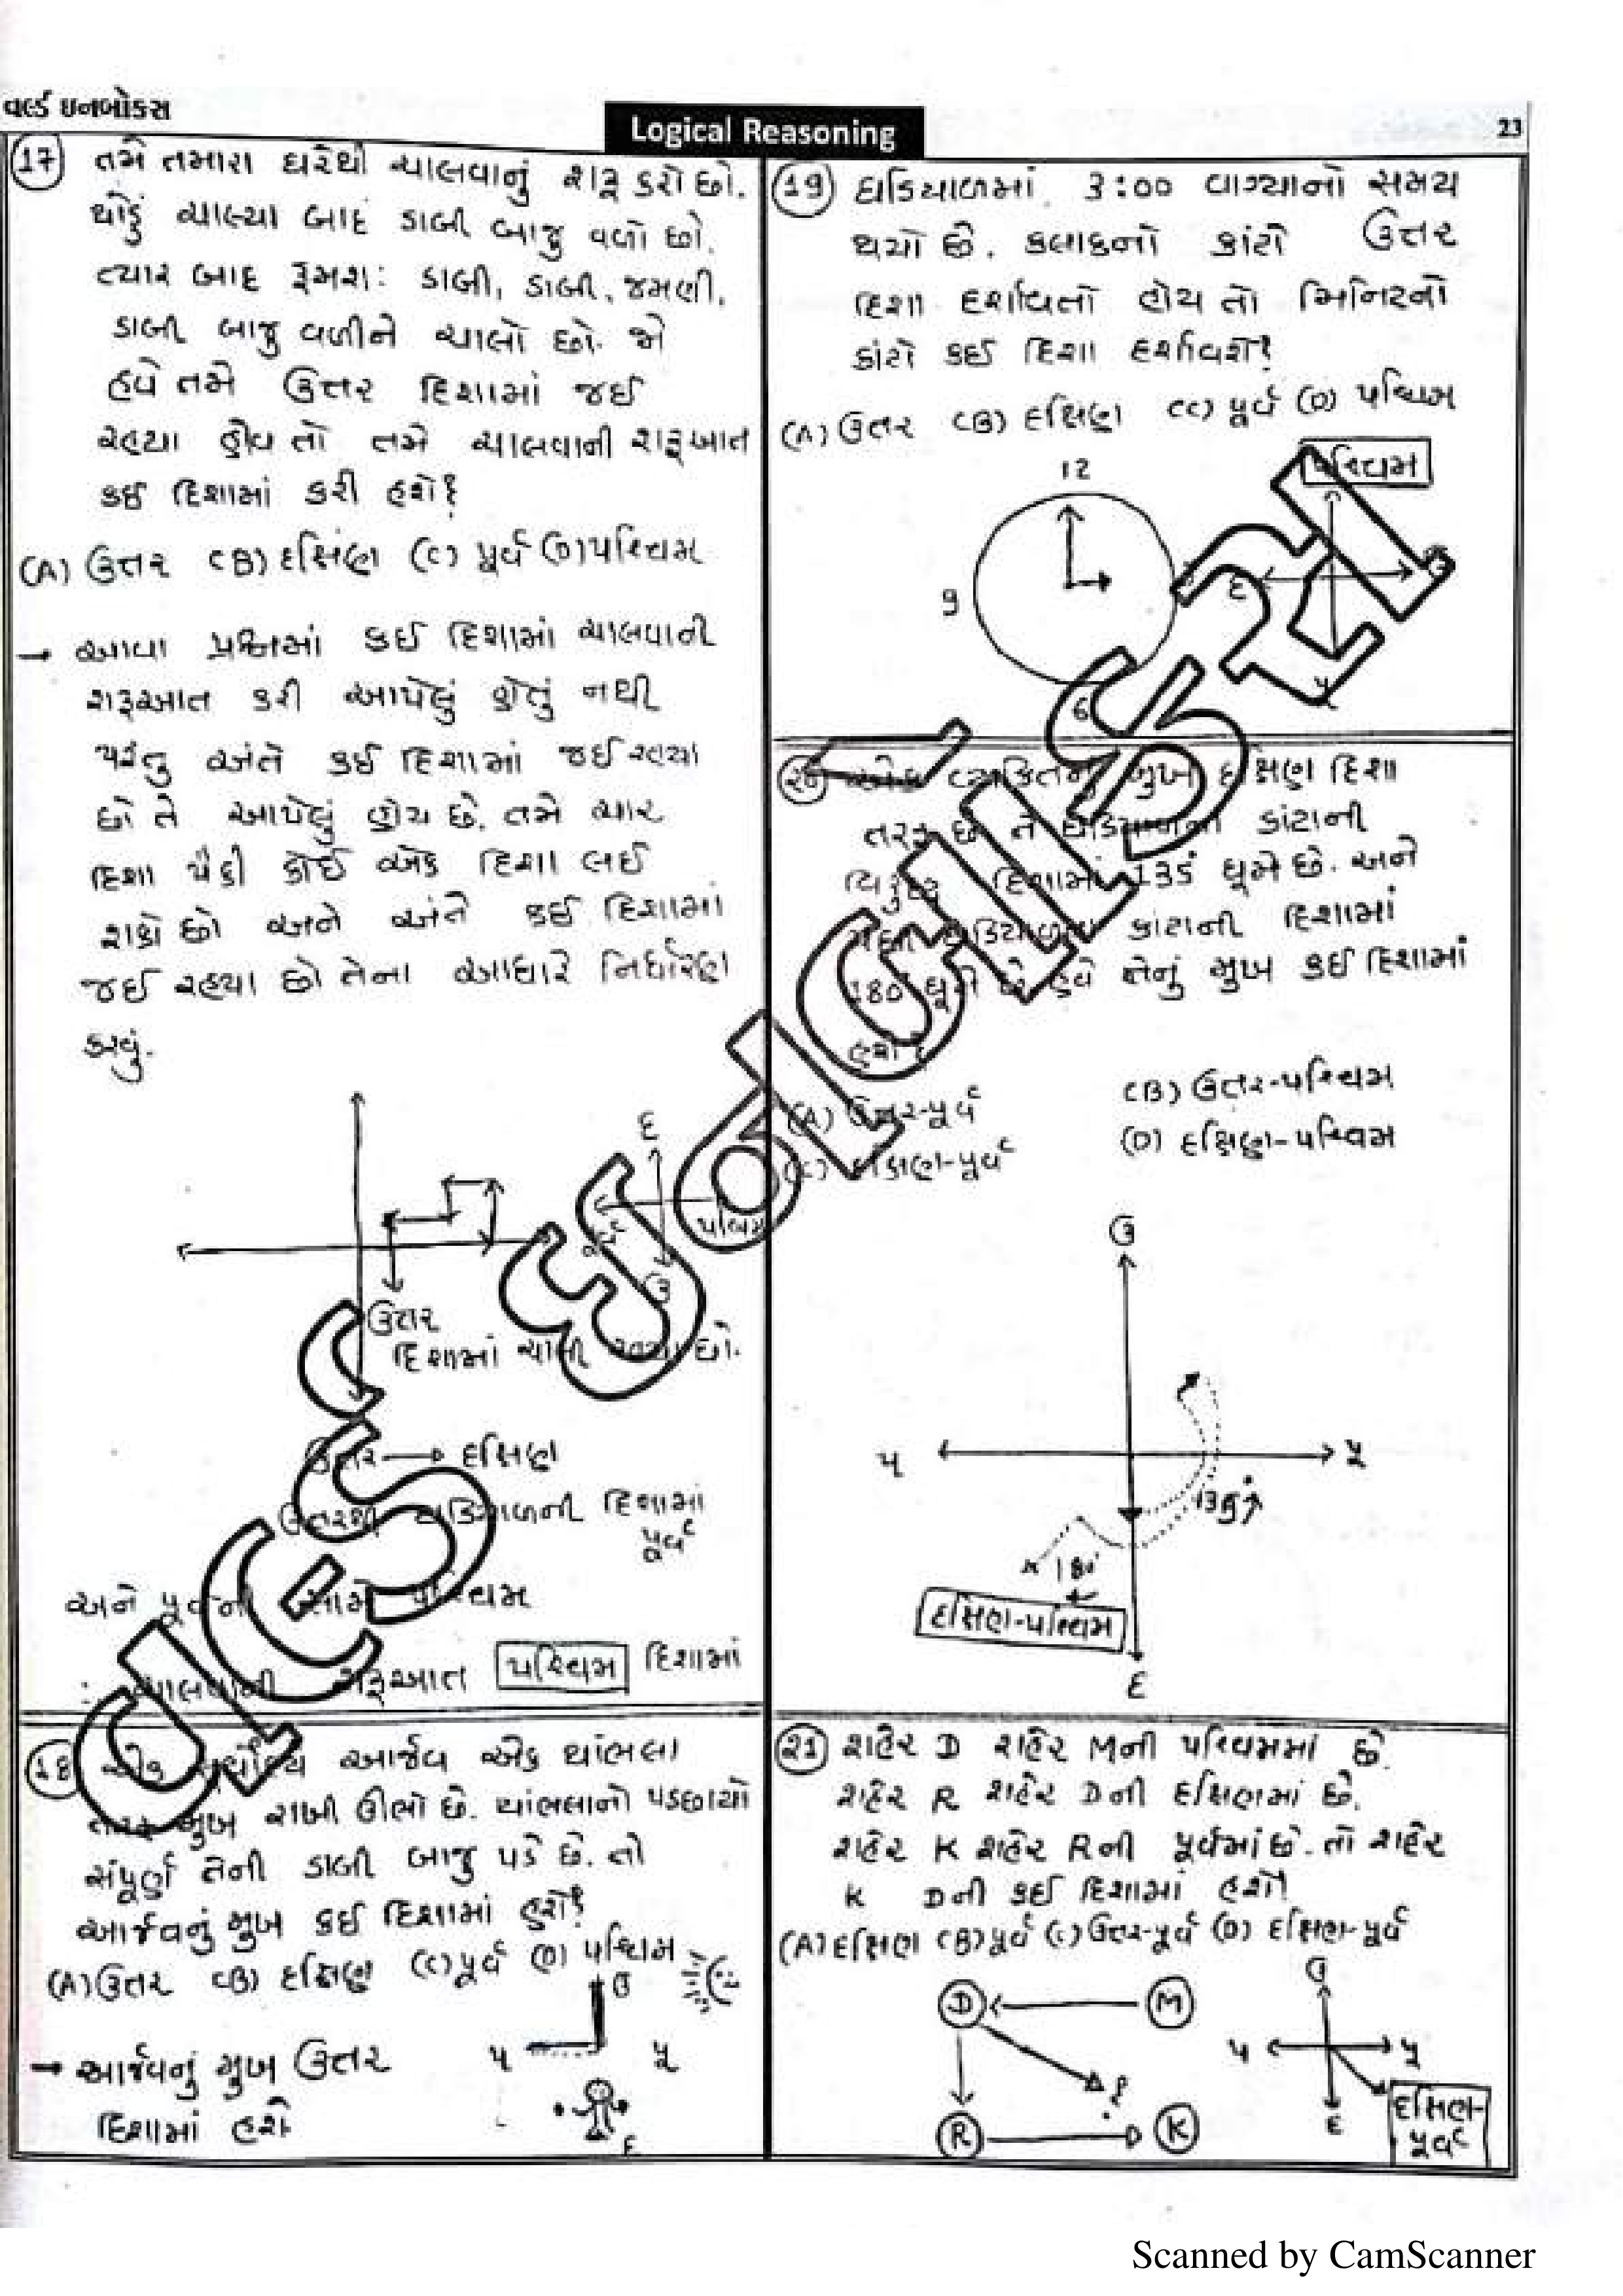 વર્લ્ડ ઇનબોક્સ
Logical Reasoning
23
(17) તમે તમારા ઘરેથી ચાલવાનું શરૂ કરો છો.
થોડું ચાલ્યા બાદ ડાબી બાજુ વળો છો.
ત્યાર બાદ ક્રમશઃ ડાબી, ડાબી, જમણી,
ડાબી બાજુ વળીને ચાલો છો. જો
હવે તમે ઉત્તર દિશામાં જઈ
રહ્યા હોવ તો તમે ચાલવાની શરૂઆત
કઈ દિશામાં કરી હશે?
(A) ઉત્તર (B) દક્ષિણ (C) પૂર્વ (D) પશ્ચિમ
→ આવા પ્રશ્નમાં કઈ દિશામાં ચાલવાની
શરૂઆત કરી આપેલું હોતું નથી
પરંતુ અંતે કઈ દિશામાં જઈ રહ્યા
છો તે આપેલું હોય છે. તમે ચાર
દિશા પૈકી કોઈ એક દિશા લઈ
શકો છો અને અંતે કઈ દિશામાં
જઈ રહ્યા છો તેના આધારે નિર્ધારણ
કરવું.
દ
પશ્ચિમ
ઉ
ઉત્તર
દિશામાં ચાલી રહ્યા છો.
ઉત્તર → દક્ષિણ
ઉત્તરથી ઘડિયાળની દિશામાં
પૂર્વ
અને પૂર્વની સામે પશ્ચિમ
ચાલવાની શરૂઆત પશ્ચિમ દિશામાં
(18) એક સૂર્યોદય આર્જવ એક થાંભલા
તરફ મુખ રાખી ઊભો છે. થાંભલાનો પડછાયો
સંપૂર્ણ તેની ડાબી બાજુ પડે છે. તો
આર્જવનું મુખ કઈ દિશામાં હશે?
(A) ઉત્તર (B) દક્ષિણ (C) પૂર્વ (D) પશ્ચિમ
ઉ
પ પૂ
→ આર્જવનું મુખ ઉત્તર
દિશામાં હશે
દ
(19) ઘડિયાળમાં 3:00 વાગ્યાનો સમય
થયો છે. કલાકનો કાંટો ઉત્તર
દિશા દર્શાવતો હોય તો મિનિટનો
કાંટો કઈ દિશા દર્શાવશે?
(A) ઉત્તર (B) દક્ષિણ (C) પૂર્વ (D) પશ્ચિમ
12
9
6
પશ્ચિમ
દ ઉ
પૂ
(20) એક વ્યક્તિનું મુખ દક્ષિણ દિશા
તરફ છે તે ઘડિયાળના કાંટાની
વિરુદ્ધ દિશામાં 135° ઘૂમે છે. અને
પછી ઘડિયાળના કાંટાની દિશામાં
180° ઘૂમે છે. હવે તેનું મુખ કઈ દિશામાં
હશે?
(A) ઉત્તર-પૂર્વ (B) ઉત્તર-પશ્ચિમ
(C) દક્ષિણ-પૂર્વ (D) દક્ષિણ-પશ્ચિમ
ઉ
પ પૂ
135°
180°
દક્ષિણ-પશ્ચિમ
દ
(21) શહેર D શહેર Mની પશ્ચિમમાં છે.
શહેર R શહેર Dની દક્ષિણમાં છે.
શહેર K શહેર Rની પૂર્વમાં છે. તો શહેર
K Dની કઈ દિશામાં હશે?
(A) દક્ષિણ (B) પૂર્વ (C) ઉત્તર-પૂર્વ (D) દક્ષિણ-પૂર્વ
D M
?
R K
ઉ
પ પૂ
દ
દક્ષિણ-
પૂર્વ
Scanned by CamScanner